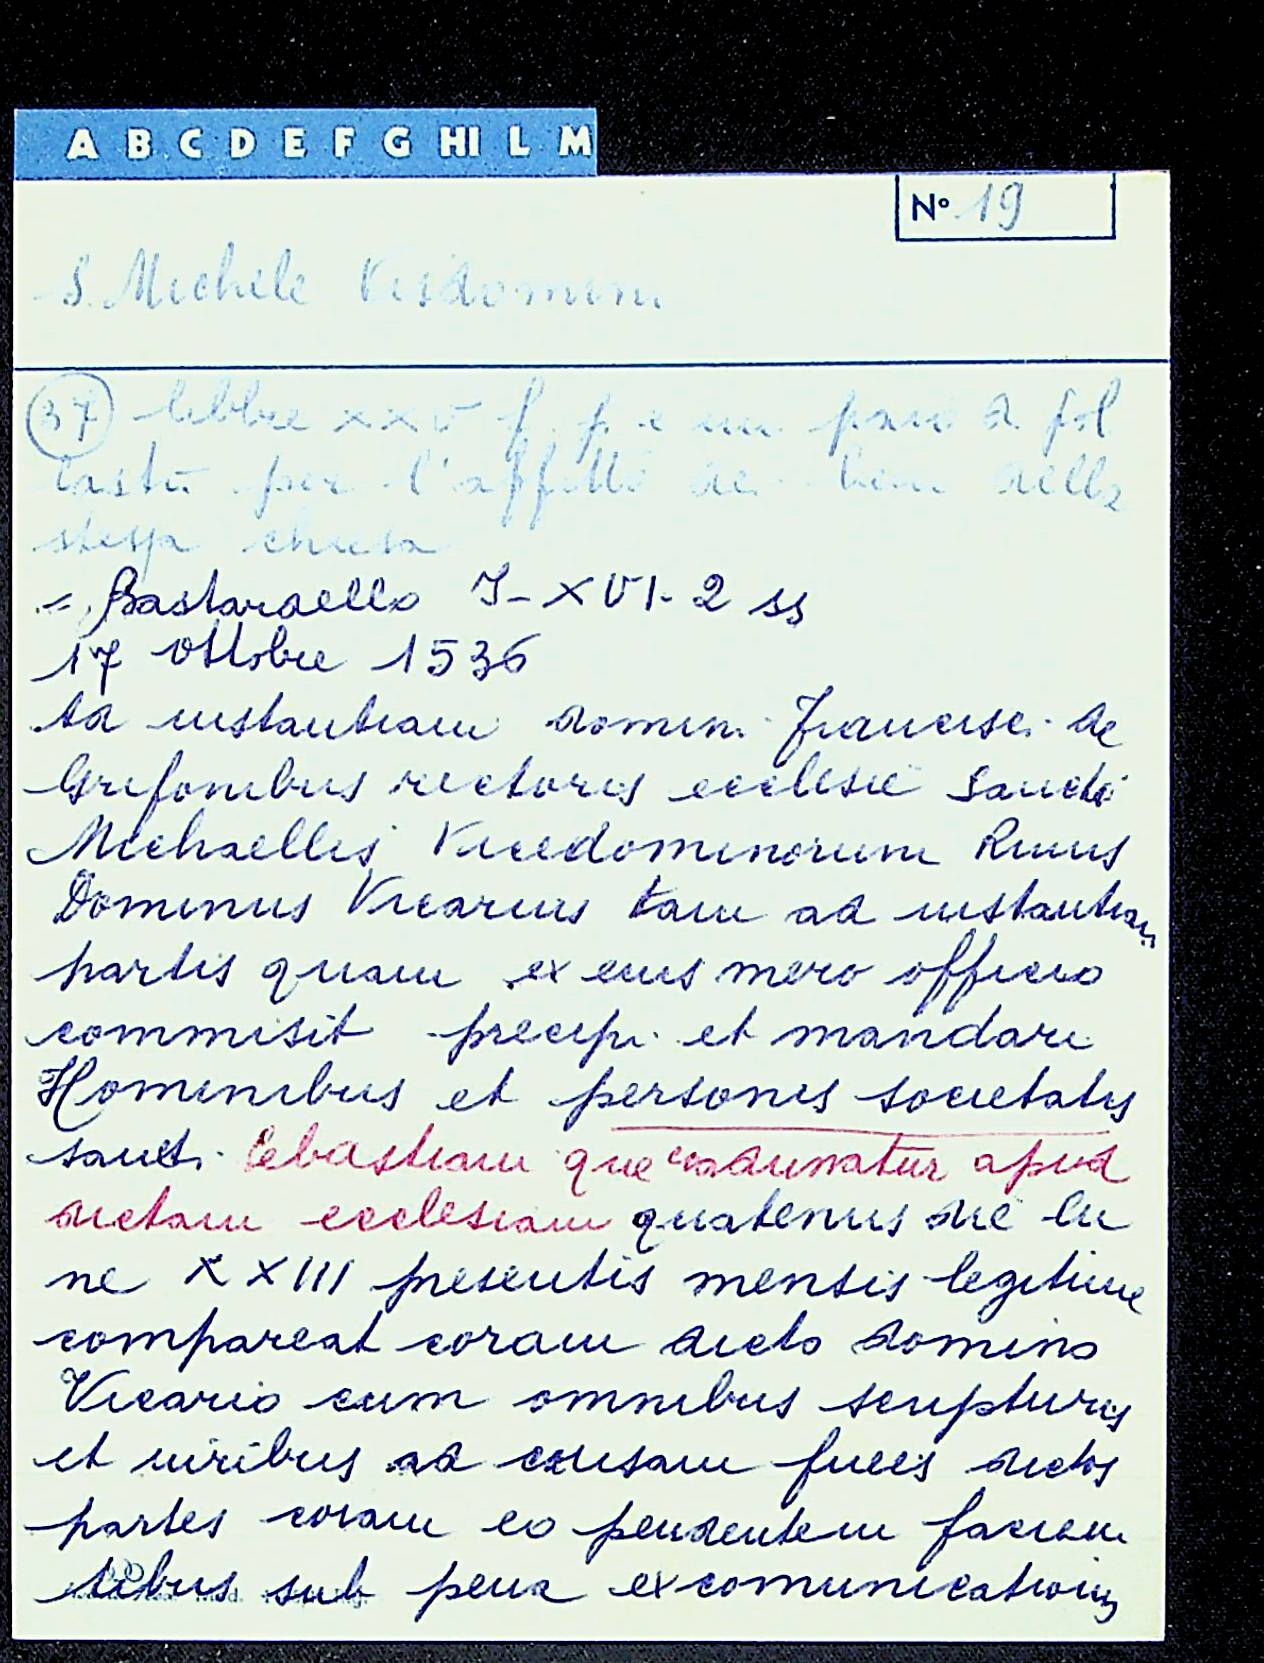 A B C D E F G HI L M
N° 19
S. Michele Visdomini
37 libbre XXV f. p. e un paio di pol
lastri per l'affitto dei beni della
stessa chiesa
Bastardello I-XVI-2 ss
17 ottobre 1536
Ad instantiam domini Francisci de
Grifonibus rectoris ecclesie Sancti
Michaellis Vicedominorum Rmus
Dominus Vicarius tam ad instantiam
partis quam ex eius mero officio
commisit precipi et mandari
Hominibus et personis societatis
sancti Sebastiani que coadunatur apud
dictam ecclesiam quatenus die lu
ne XXIII presentis mensis legitime
compareat coram dicto domino
Vicario cum omnibus scripturis
et iuribus ad causam inter dictas
partes coram eo pendentem facien
tibus sub pena excomunicationis